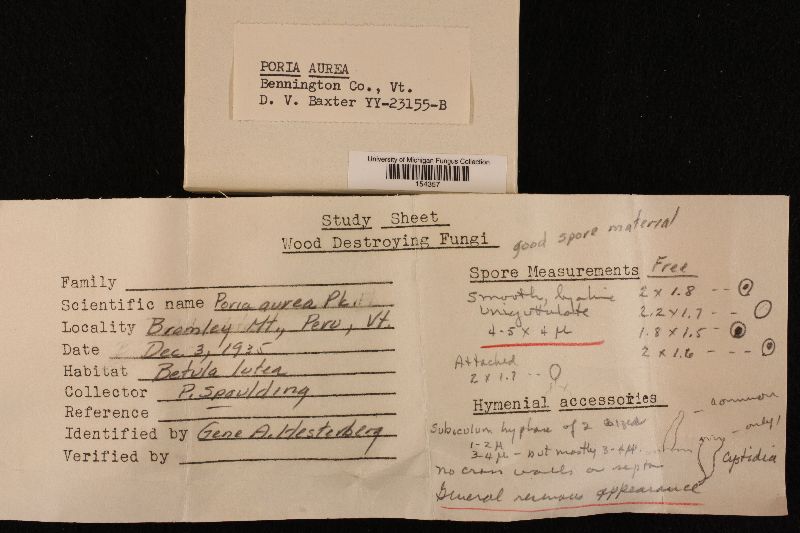 PORIA AUREA
Bennington Co., Vt.
D. V. Baxter YY-23155-B
University of Michigan Fungus Collection
154367
Study Sheet
Wood Destroying Fungi
Family
Scientific name Poria aurea Pk.
Locality Bromley Mt., Peru, Vt.
Date Dec 3, 1935
Habitat Betula lutea
Collector P. Spaulding
Reference
Identified by Gene A. Hesterberg
Verified by
good spore material
Spore Measurements Free
Smooth, hyaline 2 x 1.8 --
Uniguttulate 2.2 x 1.7 --
4-5 x 4 µ 1.8 x 1.5 -
2 x 1.6 ---
Attached
2 x 1.7 --
Hymenial accessories
Subiculum hyphae of 2 sizes
1-2 µ
3-4 µ - but mostly 3-4 µ
no cross walls or septa
General resinous appearance
- common
- only!
Cystidia